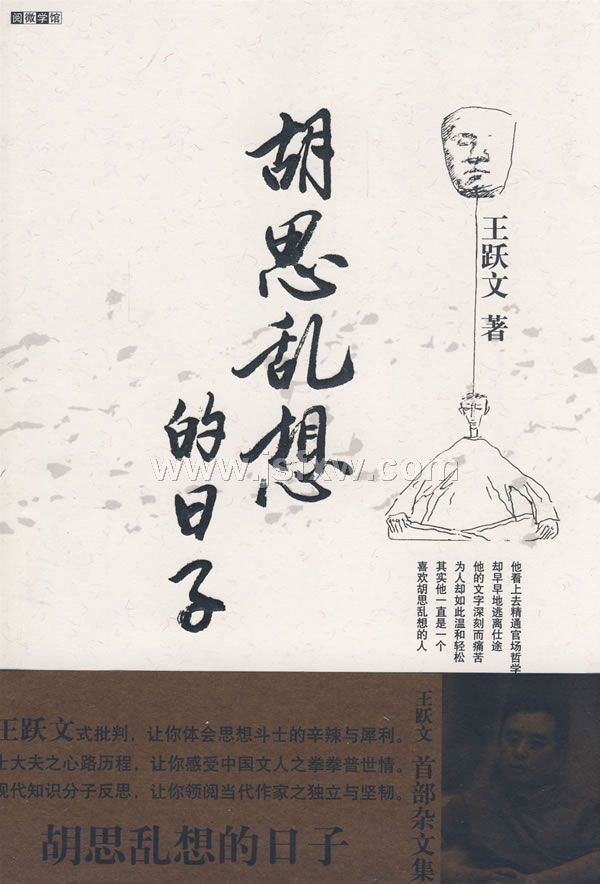 阅微学馆
胡思乱想
的日子
王跃文 著
www.jsfxw.com
他看上去精通官场哲学
却早早地逃离仕途
他的文字深刻而痛苦
为人却如此温和轻松
其实他一直是一个
喜欢胡思乱想的人
王跃文式批判，让你体会思想斗士的辛辣与犀利。
士大夫之心路历程，让你感受中国文人之拳拳普世情。
现代知识分子反思，让你领阅当代作家之独立与坚韧。
胡思乱想的日子
王跃文 首部杂文集